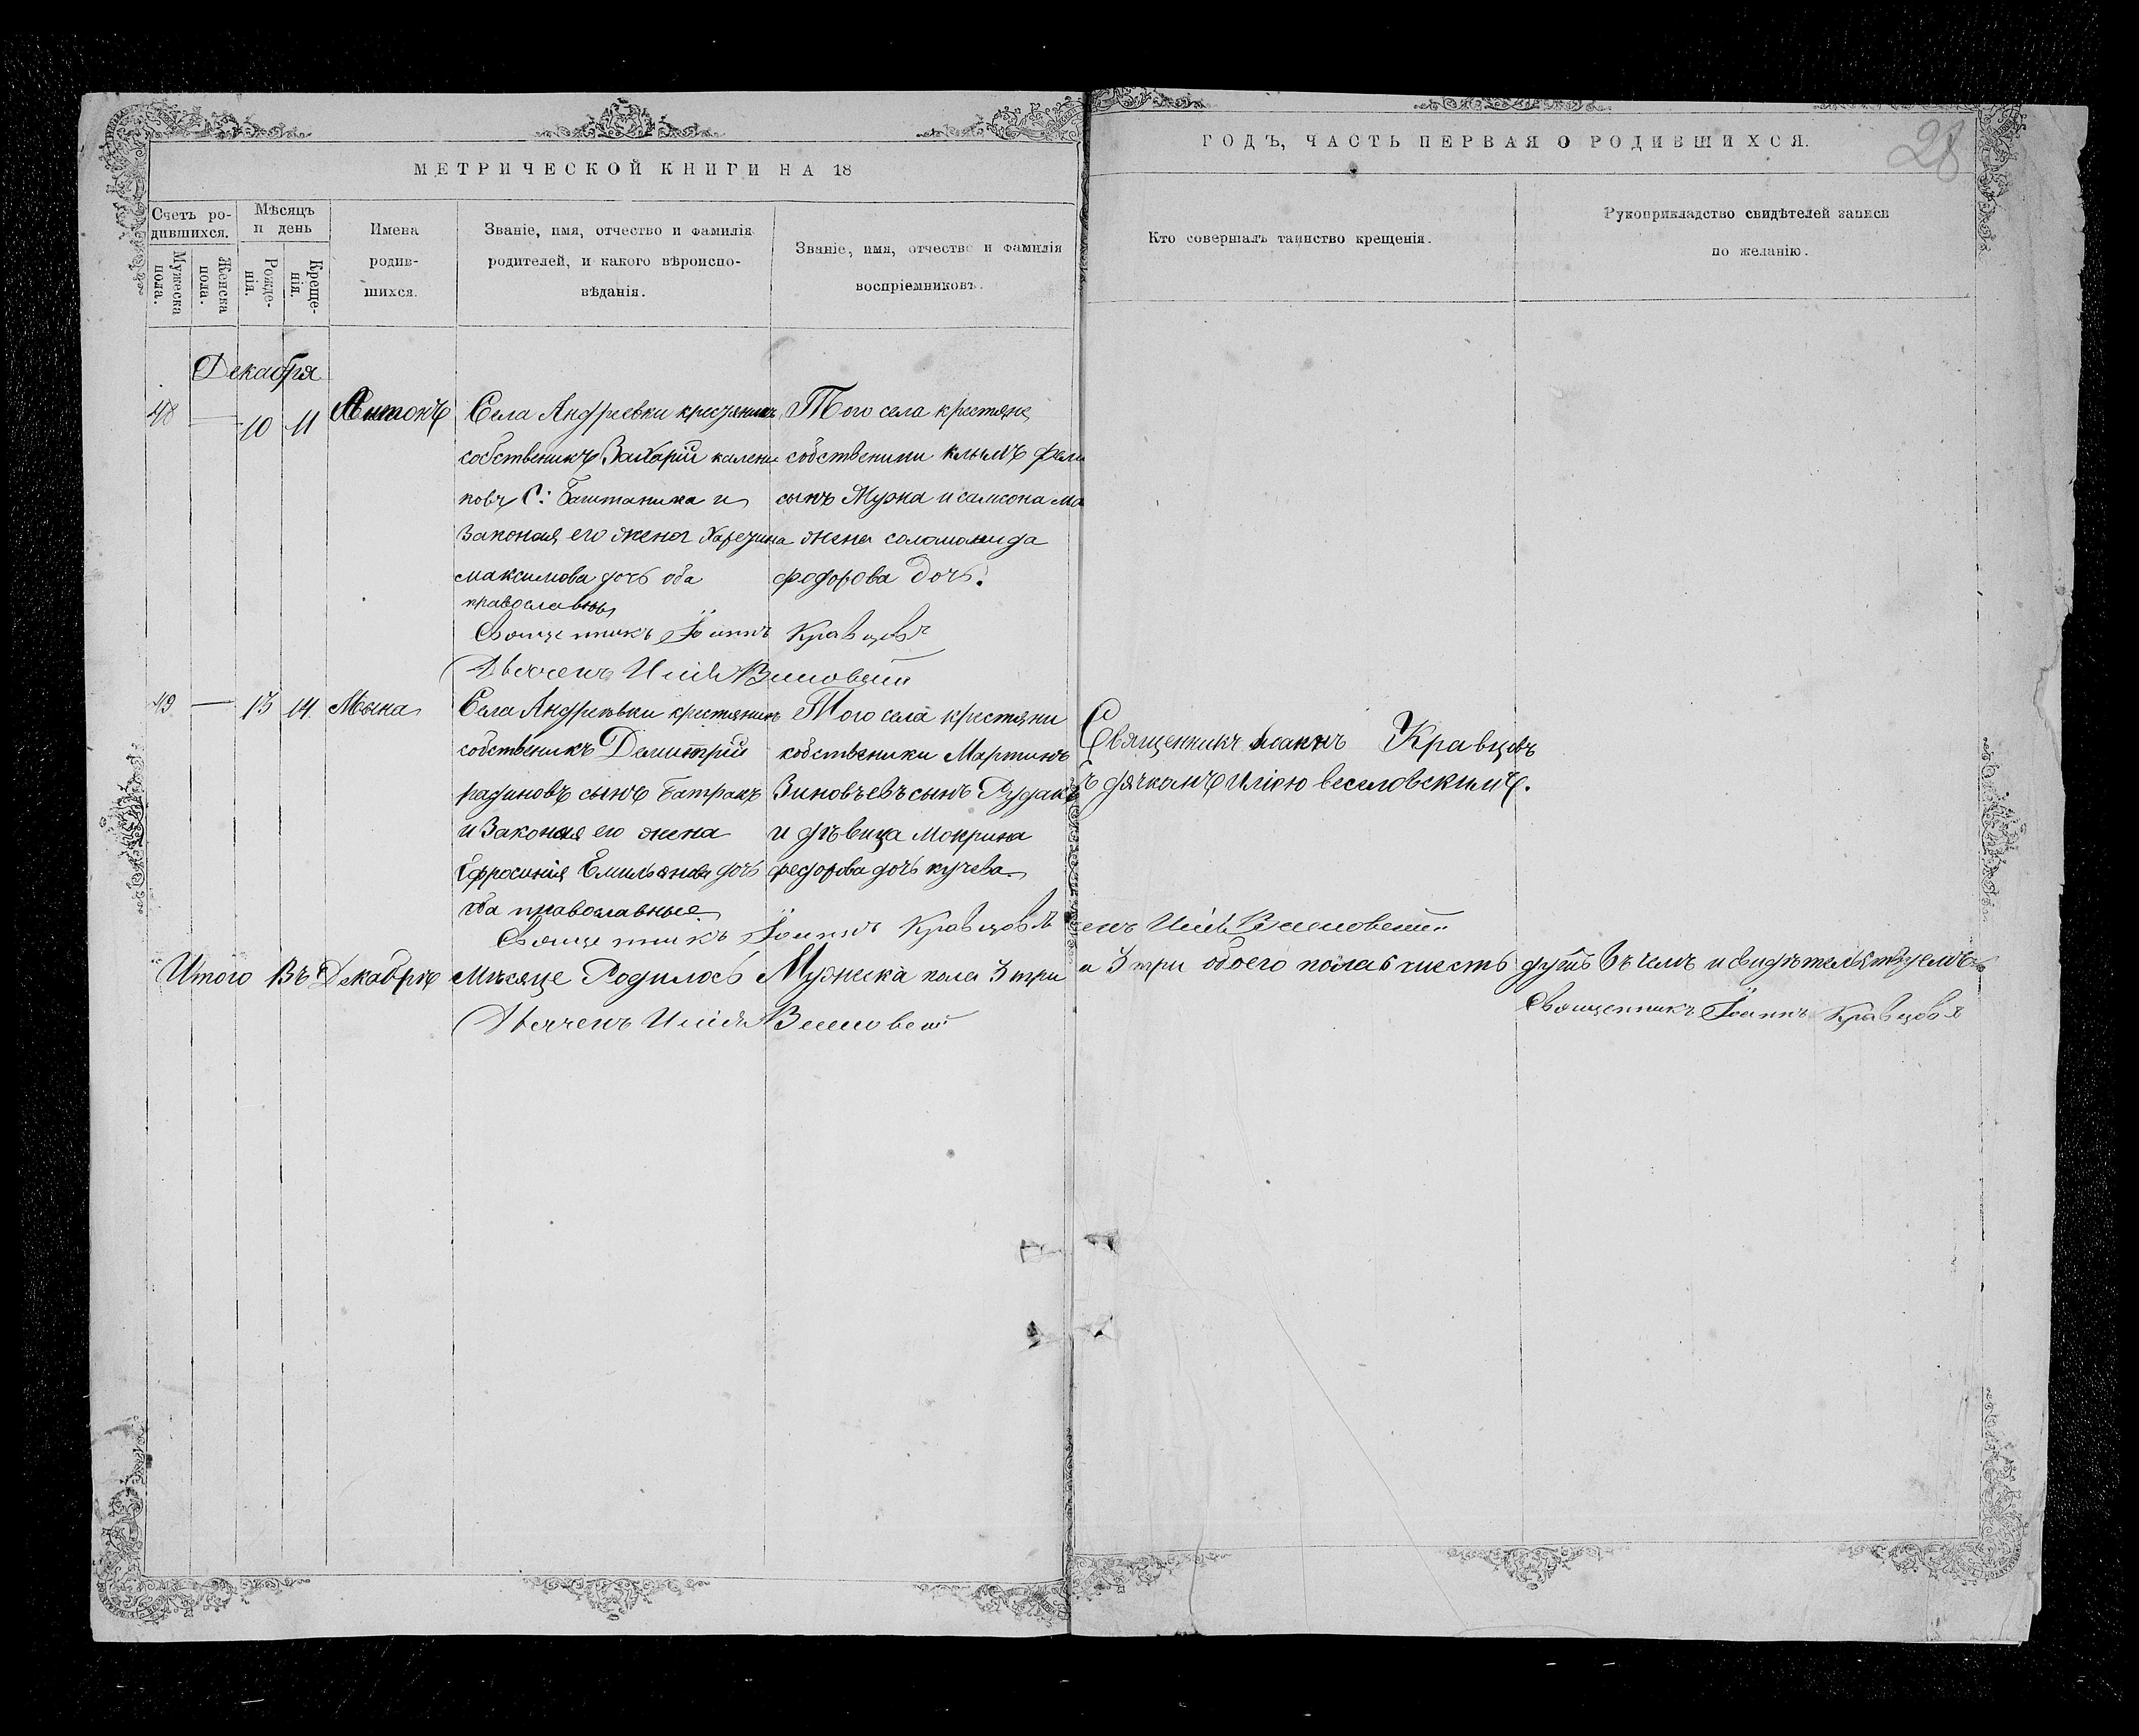 МЕТРИЧЕСКОЙ КНИГИ НА 18
ГОДЪ, ЧАСТЬ ПЕРВАЯ О РОДИВШИХСЯ.
28
Счетъ ро-
дившихся.
Мужеска
пола.
Женска
пола.
Мѣсяцъ
и день
Рожде-
нія.
Креще-
нія.
Имена
родив-
шихся.
Званіе, имя, отчество и фамилія
родителей, и какого вѣроиспо-
вѣданія.
Званіе, имя, отчество и фамилія
воспріемниковъ.
Кто совершалъ таинство крещенія.
Рукоприкладство свидѣтелей записи
по желанію.
Декабря
48 — 10 11 Антонъ
Села Андреевки
собственикъ Захарій
С: Баштаника и
Законая его жена
максимова дочь оба
православны
Того села крестяне
собственики
сынъ Мужа и самсона
жена соломонида
федорова дочь.
Священникъ Іоаннъ Кравцовъ
49 — 13 14 Мина
Села Андреевки крестянинъ
собственикъ Димитрій
родиновъ сынъ Батракъ
и Законая его жена
Ефросинія Емильянова дочь
оба православные
Того села крестяни
собственики Мартинъ
Зиновъевъ сынъ Рудакъ
и дѣвица Мокрина
федорова дочь кучева
Священникъ Іоаннъ Кравцовъ
съ дячкомъ Иліою веселовскимъ.
Священникъ Іоаннъ Кравцовъ
Итого Въ Декабрѣ Мѣсяце Родилось Мужеска пола 3 три
и 3 три обоего пола 6 шесть душъ въ чемъ и свидѣтельствуемъ
Священникъ Іоаннъ Кравцовъ